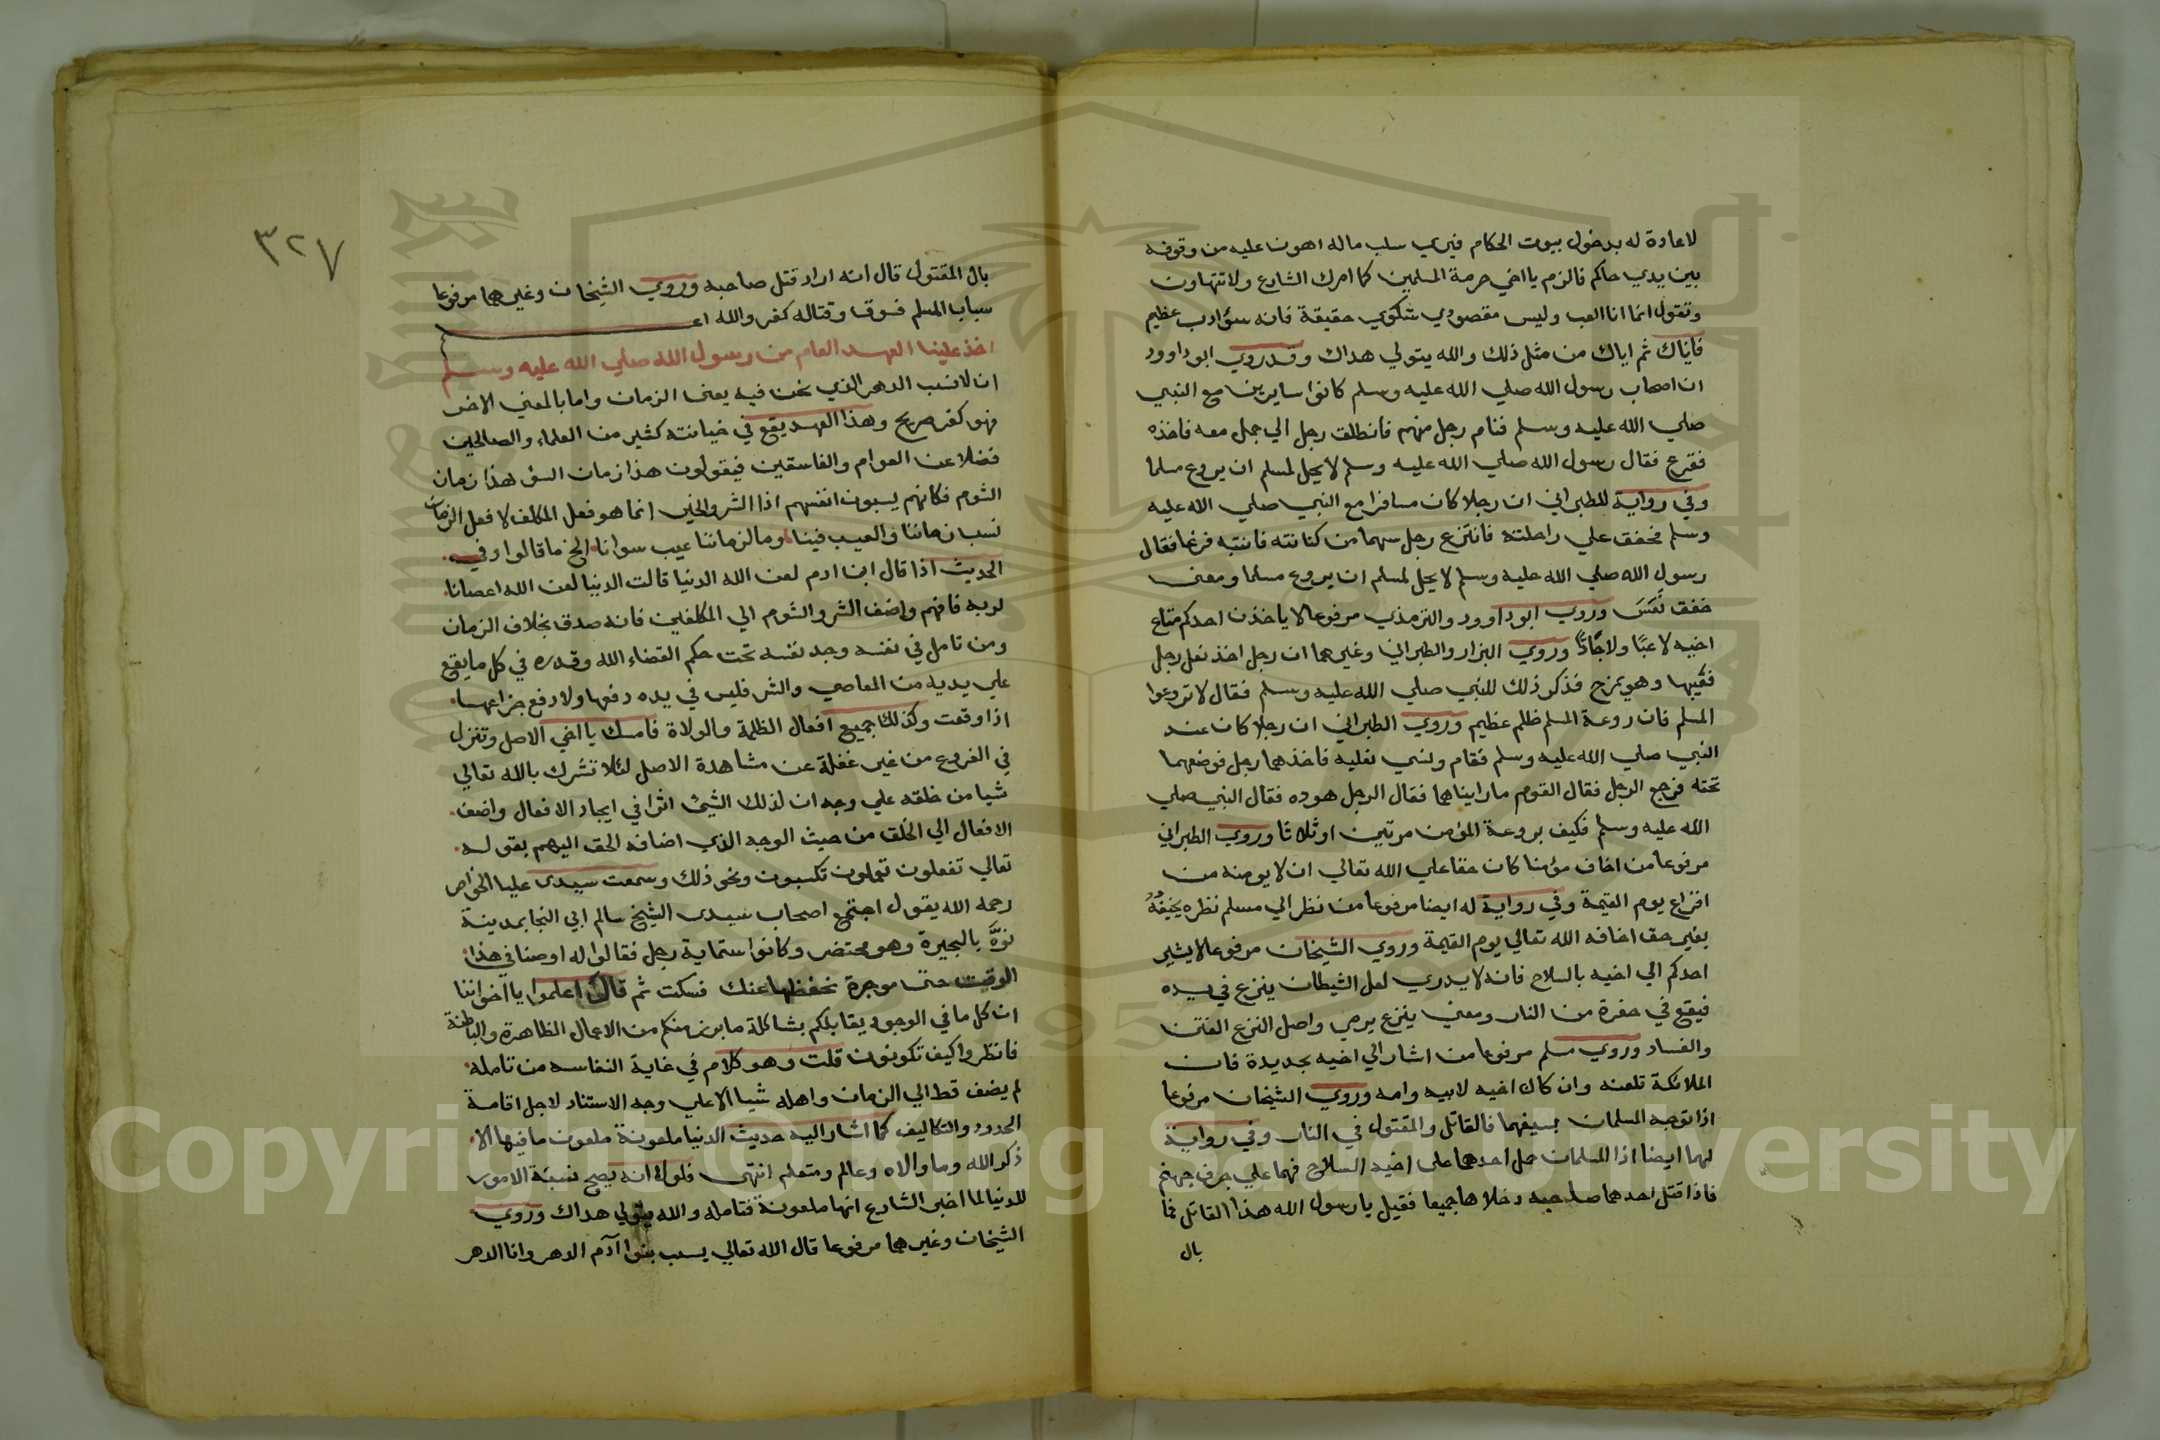 لاعادة له بدخول بيوت الحكام فيري سلب ماله اهون عليه من وقوفه
بين يدي حاكم فالزم يااخي حرمة المسلمين كما امرك الشارع ولا تتهاون
وتقول انما انا العب وليس مقصودي شكوي حقيقة فانه سؤادب عظيم
فاياك ثم اياك من مثل ذلك والله يتولي هداك وقدروي ابوداوود
ان اصحاب رسول الله صلي الله عليه وسلم كانوا سايرين مع النبي
صلي الله عليه وسلم فنام رجل منهم فانطلق رجل الي حبل معه فاخذه
فقزع فقال رسول الله صلي الله عليه وسلم لايحل لمسلم ان يروع مسلما
وفي رواية للطبراني ان رجلا كان مسافرا مع النبي صلي الله عليه
وسلم فخفق علي راحلته فانتزع رجل سهما من كنانته فانتبه فزعا فقال
رسول الله صلي الله عليه وسلم لايحل لمسلم ان يروع مسلما ومعني
خفق نَعَسَ وروي ابوداوود والترمذي مرفوعا لا ياخذن احدكم متاع
اخيه لاعبًا ولاجادًا وروي البزار والطبراني وغيرهما ان رجل اخذ نعل رجل
فغيبها وهويمزح فذكر ذلك للنبي صلي الله عليه وسلم فقال لا تروعوا
المسلم فان روعة المسلم ظلم عظيم وروي الطبراني ان رجلا كان عند
النبي صلي الله عليه وسلم فقام ونسي نعليه فاخذهما رجل فوضعهما
تحته فرجع الرجل فقال القوم ماراينا هما فقال الرجل هوده فقال النبي صلي
الله عليه وسلم فكيف بروعة المؤمن مرتين اوثلاثا وروي الطبراني
مرفوعا من اخاف مؤمنا كان حقا علي الله تعالي ان لا يومنه من
افزاع يوم القيمة وفي رواية له ايضا مرفوعا من نظر الي مسلم نظره يخيفُهُ
بغير حق اخافه الله تعالي يوم القيمة وروي الشيخان مرفوعا لا يشير
احدكم الي اخيه بالسلاح فانه لا يدري لعل الشيطان ينزع في يده
فيقع في حفرة من النار ومعني ينزع يرمي واصل النزع الفتن
والفساد وروي مسلم مرفوعا من اشار الي اخيه بحديدة فان
الملائكة تلعنه وان كان اخيه لابيه وامه وروي الشيخان مرفوعا
اذا توجه المسلمان بسيفهما فالقاتل والمقتول في النار وفي رواية
لهما ايضا اذا المسلمان حل احدهما علي اخيه السلاح فهما علي جرف جهنم
فاذا قتل احدهما صاحبه دخلاها جميعا فقيل يارسول الله هذا القاتل فما
بال
٣٢٧
بال المقتول قال انه اراد قتل صاحبه وروي الشيخان وغيرهما مرفوعا
سباب المسلم فسوق وقتاله كفر والله اعــلم
اخذ علينا العهد العام من رسول الله صلي الله عليه وسلم
ان لانسب الدهر الذي نحن فيه يعني الزمان واما بالمعني الاخر
فهو كفر صريح وهذا العهد يقع في خيانته كثير من العلماء والصالحين
فضلا عن العوام والفاسقين فيقولون هذا زمان السؤ هذا زمان
الشوم فكانهم يسبون انفسهم اذا الشر والخير انما هو فعل المكلف لا فعل الزمان
نسب زماننا والعيب فينا وما لزماننا عيب سوانا الخ ماقالوا وفي
الحديث اذا قال ابن ادم لعن الله الدنيا قالت الدنيا لعن الله اعصانا
لربه فافهم واضف الشر والشوم الي المكلفين فانه صدق بخلاف الزمان
ومن تامل في نفسه وجد نفسه تحت حكم القضاء الله وقدره في كل مايقع
علي يديه من المعاصي والشر فليس في يده دفعها ولا رفع جزاءها
اذا وقعت وكذلك جميع افعال الظلمة والولاة فامسك يااخي الاصل وتنزل
في الفروع من غير غفلة عن مشاهدة الاصل لئلا تشرك بالله تعالي
شيا من خلقه علي وجه ان لذلك الشئ اثرا في ايجاد الافعال واضف
الافعال الي الخلق من حيث الوجه الذي اضافه الحق اليهم بقوله
تعالي تفعلون تعملون تكسبون ونحو ذلك وسمعت سيدي عليا الخواص
رحمه الله يقول اجتمع اصحاب سيدي الشيخ سالم ابي النجا بمدينة
نوَّه بالبحيرة وهو محتضر وكانوا ستماية رجل فقالوا له اوصنا في هذا
الوقت حتي موجزة نحفظها عنك فسكت ثم قال اعلموا يااخواننا
ان كل ما في الوجود يقابلكم بشاكلة مابرز منكم من الاعمال الظاهرة والباطنة
فانظروا كيف تكونون قلت وهو كلام في غاية النفاسه من تامله
لم يضف قط الي الزمان واهله شيا الاعلي وجه الاستناد لاجل اقامة
الحدود والتكاليف كما اشار اليه حديث الدنيا ملعونة ملعون مافيها الا
ذكر الله وما والاه وعالم ومتعلم انتهي فلولا انه يصح نسبة الامور
للدنيا لما اخبر الشارع انها ملعونة فتامله والله يتولي هداك وروي
الشيخان وغيرهما مرفوعا قال الله تعالي يسب بنوا آدم الدهر وانا الدهر
Copyright © King Saud University